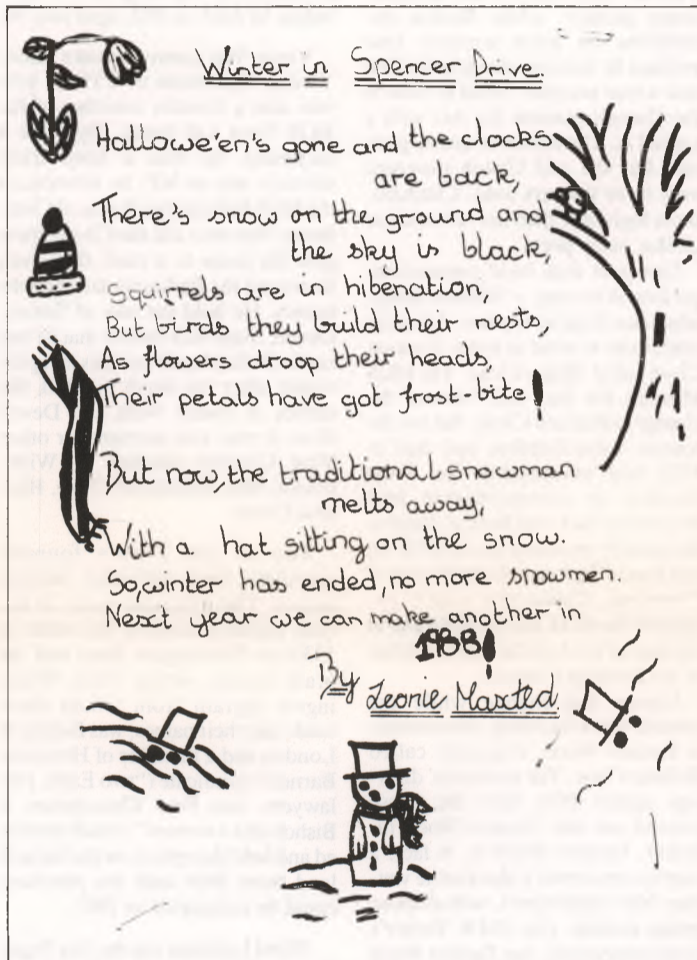 Winter in Spencer Drive
Hallowe'en's gone and the clocks
are back,
There's snow on the ground and
the sky is black,
Squirrels are in hibenation,
But birds they build their nests,
As flowers droop their heads,
Their petals have got frost-bite!
But now, the traditional snowman
melts away,
With a hat sitting on the snow.
So, winter has ended, no more snowmen.
Next year we can make another in
1988!
By
Leonie Maxted.